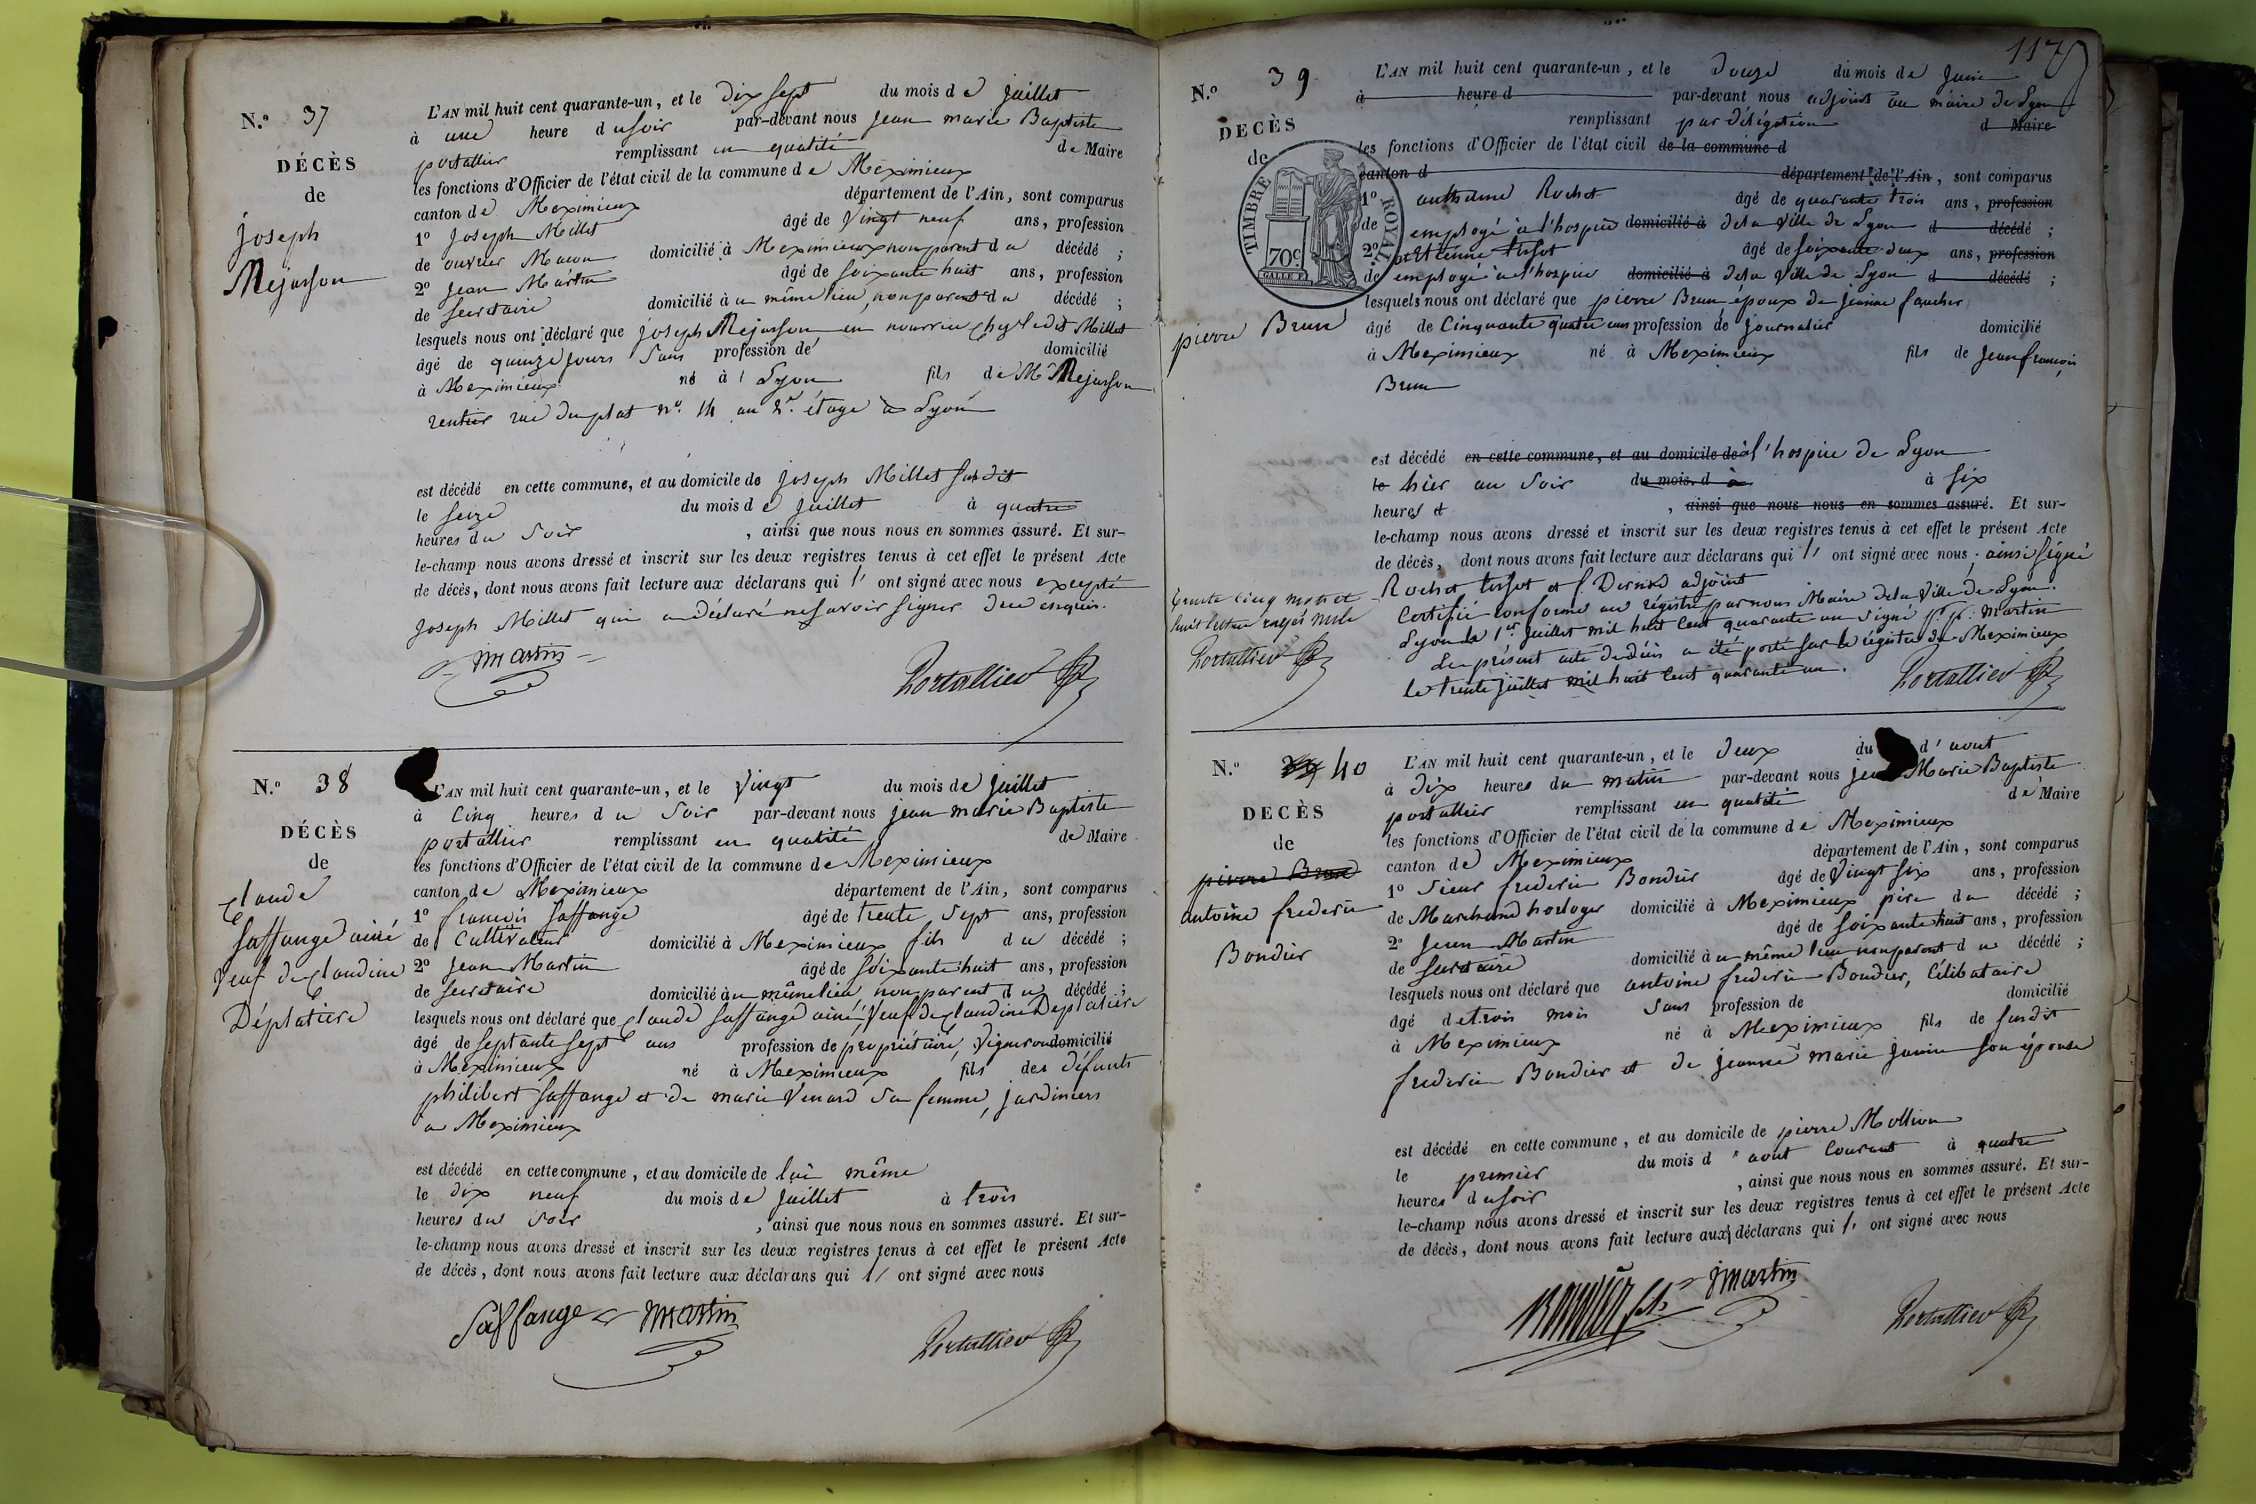 N.º 37
DÉCÈS
de
Joseph
Mejasson
L'AN mil huit cent quarante-un, et le dix sept du mois de juillet
à une heure du soir par-devant nous jean marie Baptiste
portallier remplissant en qualité de Maire
les fonctions d'Officier de l'état civil de la commune de Meximieux
canton de Meximieux département de l'Ain, sont comparus
1º Joseph Millet âgé de Vingt neuf ans, profession
de ouvrier Macon domicilié à Meximieux non parent du décédé ;
2º Jean Martin âgé de soixante huit ans, profession
de secretaire domicilié à u même lieu, non parent du décédé ;
lesquels nous ont déclaré que joseph Mejasson en nourrice chez ledit Millet
âgé de quinze jours sans profession de domicilié
à Meximieux né à Lyon fils de Mr Mejasson
rentier rue du plat nº. 14 au 2e. étage à Lyon
est décédé en cette commune, et au domicile de joseph Millet susdit
le seize du mois de juillet à quatre
heures du soir , ainsi que nous nous en sommes assuré. Et sur-
le-champ nous avons dressé et inscrit sur les deux registres tenus à cet effet le présent Acte
de décès, dont nous avons fait lecture aux déclarans qui l' ont signé avec nous excepté
joseph Millet qui a déclaré ne savoir signer de ce enquis.
Martin Portallier
N.º 38
DÉCÈS
de
Claude
Saffange ainé
Veuf de Claudine
Déplatière
L'AN mil huit cent quarante-un, et le Vingt du mois de juillet
à Cinq heures du soir par-devant nous jean marie Baptiste
portallier remplissant en qualité de Maire
les fonctions d'Officier de l'état civil de la commune de Meximieux
canton de Meximieux département de l'Ain, sont comparus
1º francois Saffange âgé de trente sept ans, profession
de Cultivateur domicilié à Meximieux fils du décédé ;
2º Jean Martin âgé de soixante huit ans, profession
de secretaire domicilié à u même lieu non parent du décédé ;
lesquels nous ont déclaré que Claude Saffange ainé, Veuf de Claudine Deplatière
âgé de septante sept ans profession de propriétaire, Vigneron domicilié
à Meximieux né à Meximieux fils des défunts
philibert Saffange et de marie Venard sa femme, jardiniers
a Meximieux
est décédé en cette commune, et au domicile de lui même
le dix neuf du mois de juillet à trois
heures du soir , ainsi que nous nous en sommes assuré. Et sur-
le-champ nous avons dressé et inscrit sur les deux registres tenus à cet effet le présent Acte
de décès, dont nous avons fait lecture aux déclarans qui l' ont signé avec nous
Saffange Martin Portallier
117
N.º 39
DECÈS
de
TIMBRE ROYAL
70c.
pierre Brun
L'AN mil huit cent quarante-un, et le douze du mois de Juin
à heure d par-devant nous adjoint au maire de Lyon
remplissant par délégation d Maire
les fonctions d'Officier de l'état civil de la commune d
canton d département de l'Ain, sont comparus
1º anthelme Rochet âgé de quarante trois ans, profession
de employé à l'hospice domicilié à de la Ville de Lyon d décédé ;
2º et Etienne tissot âgé de soixante deux ans, profession
de employé à l'hospice domicilié à de la Ville de Lyon d décédé ;
lesquels nous ont déclaré que pierre Brun époux de jeanne faucher
âgé de Cinquante quatre ans profession de journalier domicilié
à Meximieux né à Meximieux fils de jean françois
Brun
est décédé en cette commune, et au domicile de à l'hospice de Lyon
le hier au soir du mois d à à six
heures d , ainsi que nous nous en sommes assuré. Et sur-
le-champ nous avons dressé et inscrit sur les deux registres tenus à cet effet le présent Acte
de décès, dont nous avons fait lecture aux déclarans qui l' ont signé avec nous. ainsi signé
Rochet tissot et adjoint
Certifié conforme au régistre par nous Maire de la Ville de Lyon.
Lyon le 1er juillet mil huit cent quarante un signé martin
Le présent acte de décès a été porté sur le régistre de Meximieux
le trente juillet mil huit cent quarante un. Portallier
trente cinq mots et
huit lettres rayés nuls
Portallier
N.º 39 40
DECÈS
de
pierre Brun
antoine frederic
Bondier
L'AN mil huit cent quarante-un, et le deux du d'aout
à dix heures du matin par-devant nous Marie Baptiste
portallier remplissant en qualité de Maire
les fonctions d'Officier de l'état civil de la commune de Meximieux
canton de Meximieux département de l'Ain, sont comparus
1º sieur frederic Bondier âgé de Vingt six ans, profession
de Marchand horloger domicilié à Meximieux père du décédé ;
2º Jean Martin âgé de soixante huit ans, profession
de secretaire domicilié à u même lieu non parent du décédé ;
lesquels nous ont déclaré que antoine frederic Bondier, Célibataire
âgé de trois mois sans profession de domicilié
à Meximieux né à Meximieux fils de susdit
frederic Bondier et de jeanne marie janin son épouse
est décédé en cette commune, et au domicile de pierre Mollion
le premier du mois d'aout Courant à quatre
heures du soir , ainsi que nous nous en sommes assuré. Et sur-
le-champ nous avons dressé et inscrit sur les deux registres tenus à cet effet le présent Acte
de décès, dont nous avons fait lecture aux déclarans qui l' ont signé avec nous
Martin Portallier